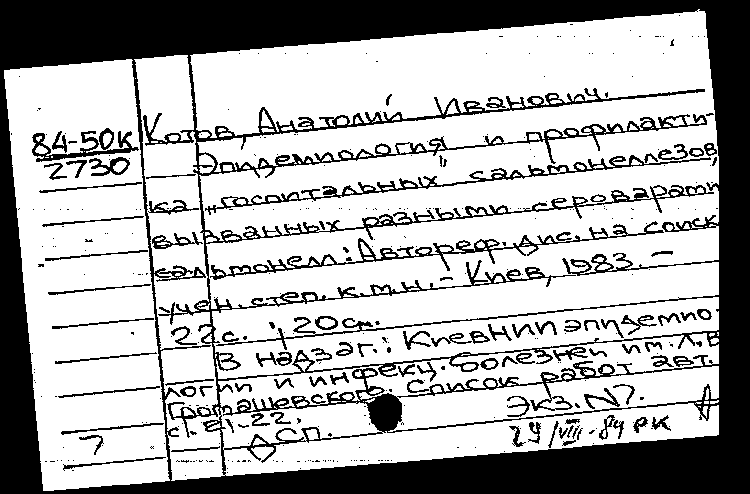 84-50к
2730
Котов, Анатолий Иванович.
Эпидемиология и профилакти-
ка „госпитальных" сальмонеллезов,
вызванных разными сероварами
сальмонелл: Автореф. дис. на соиск.
учен. степ. к.м.н. – Киев, 1983. –
22с. ; 20см.
В надзаг.: Киев НИИ эпидемио-
логии и инфекц. болезней им. Л.В.
Громашевского. Список работ авт.
с. 21-22.
Экз. N7.
7
ДСП.
29/VIII-84 РК